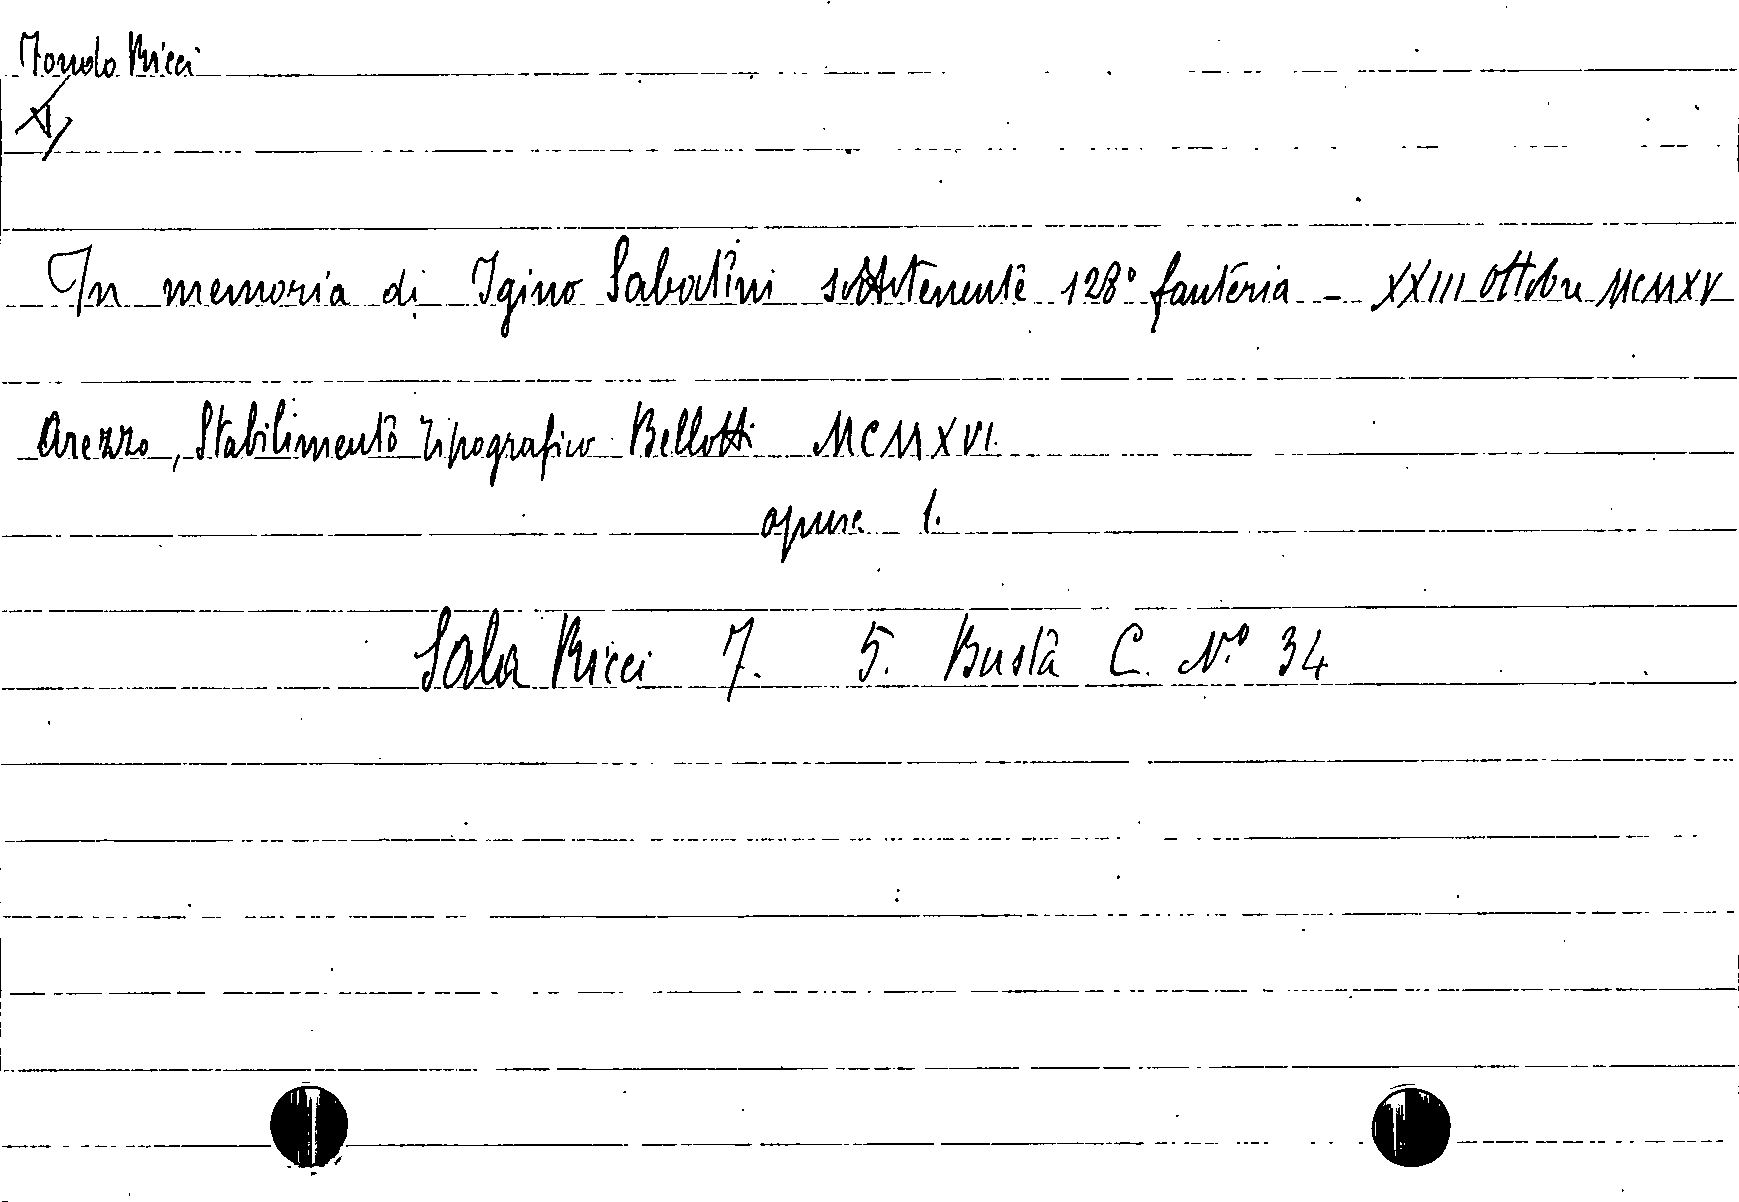 Fondo Ricci
In memoria di Igino Sabatini sottotenente 128° fanteria - XXIII Ottobre MCMXV
Arezzo, Stabilimento tipografico Bellotti MCMXVI.
opusc. 1.
Sala Ricci 7. 5. Busta C. N.° 34